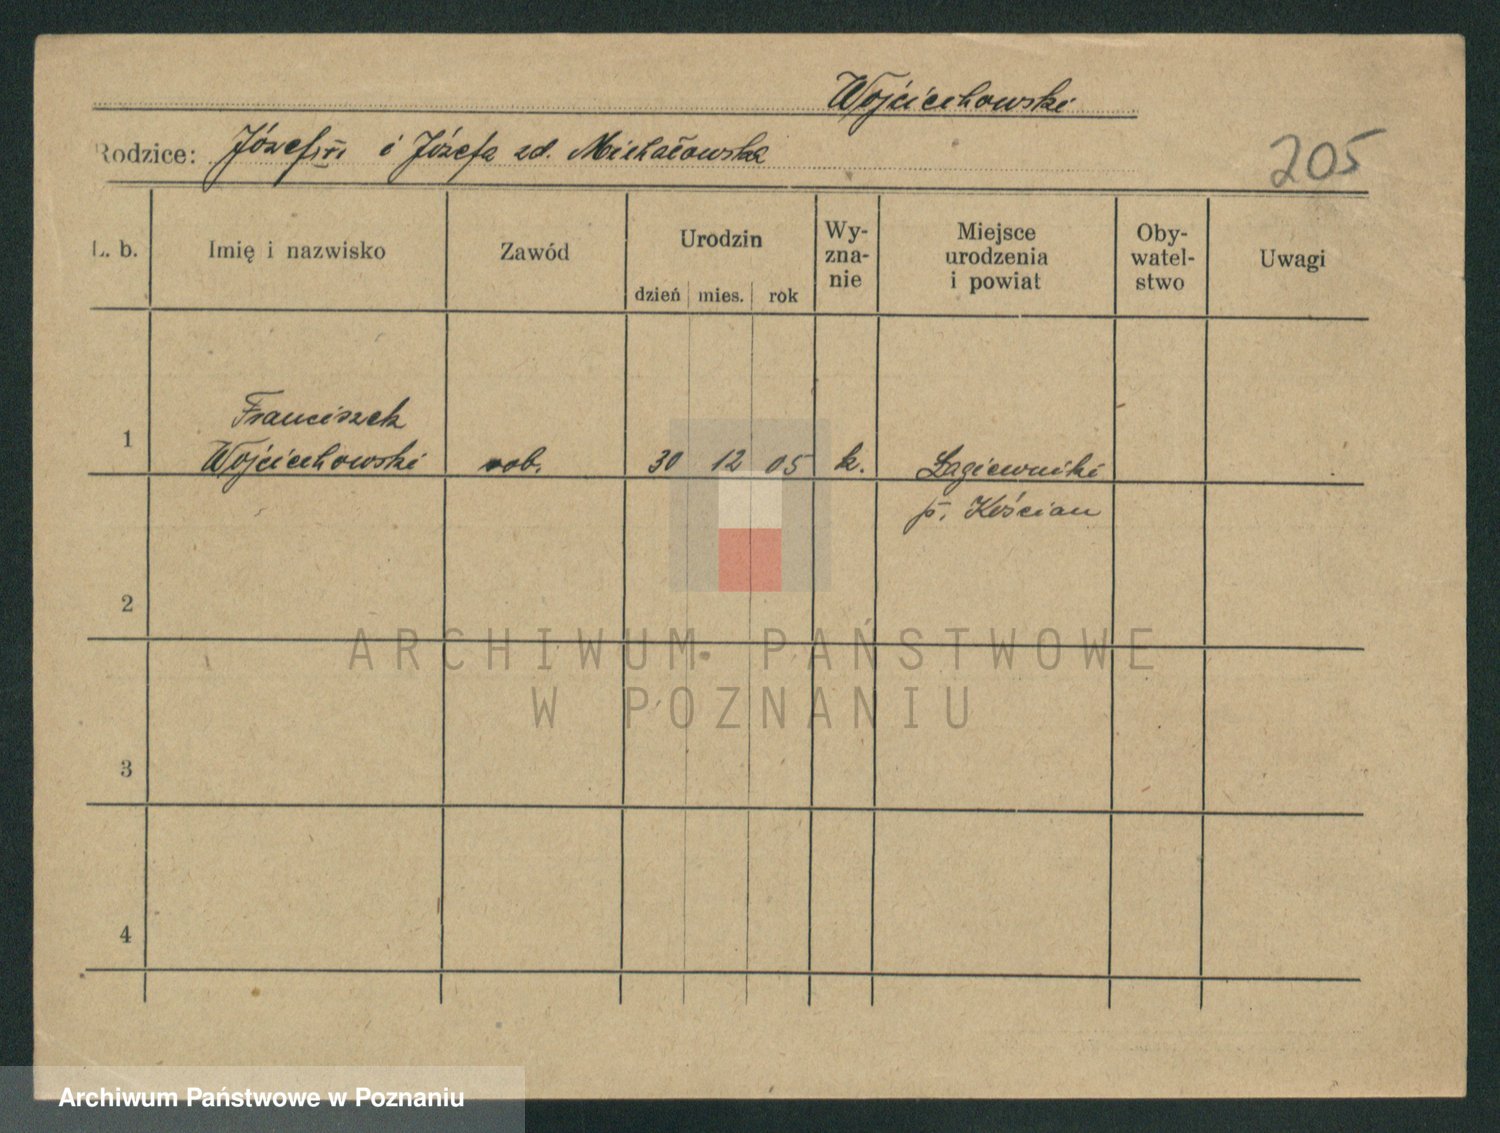 Wojciechowski
Rodzice: Józef i Józefa zd. Michałowska
205
L. b. Imię i nazwisko Zawód Urodzin dzień mies. rok Wy-zna-nie Miejsce urodzenia i powiat Oby-watel-stwo Uwagi
Franciszek
1 Wojciechowski rob. 30 12 05 k. Łagiewniki
p. Kościan
2
ARCHIWUM PAŃSTWOWE
W POZNANIU
3
4
Archiwum Państwowe w Poznaniu